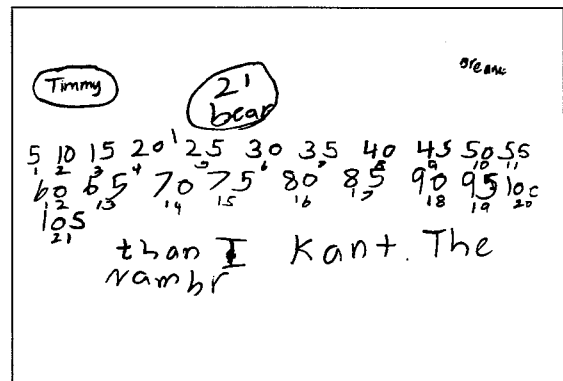 Timmy
21
bear
5 10 15 20 25 30 35 40 45 50 55
1 2 3 4 5 6 7 8 9 10 11
60 65 70 75 80 85 90 95 100
12 13 14 15 16 17 18 19 20
105
21
than I Kant. The
Nambr